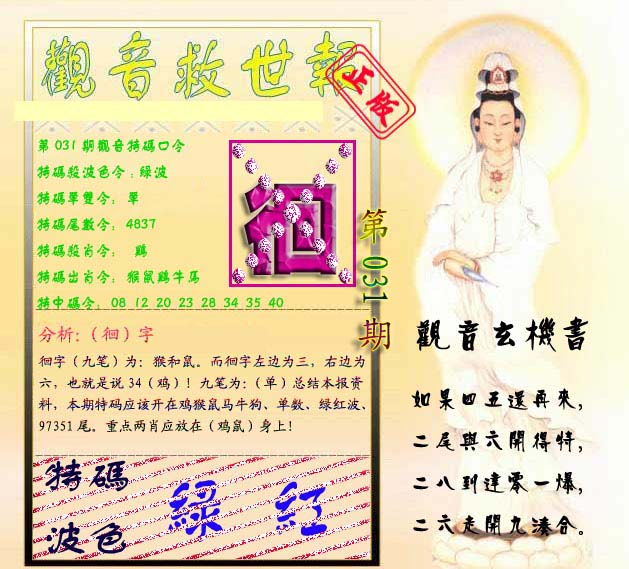 觀音救世報
正版
第031期觀音特碼口令
特碼殺波色令:綠波
特碼單雙令: 單
特碼尾數令: 4837
特碼殺肖令: 鷄
特碼出肖令: 猴鼠鷄牛馬
特中碼令: 08 12 20 23 28 34 35 40
徊
第031期
分析:(徊)字
徊字(九笔)为:猴和鼠。而徊字左边为三,右边为
六,也就是说34(鸡)!九笔为:(单)总结本报资
料,本期特码应该开在鸡猴鼠马牛狗、单数、绿红波、
97351尾。重点两肖应放在(鸡鼠)身上!
特碼
波色
綠 紅
觀音玄機書
如果四五還再來,
二尾與六開得特,
二八到達零一爆,
二六走開九湊合。